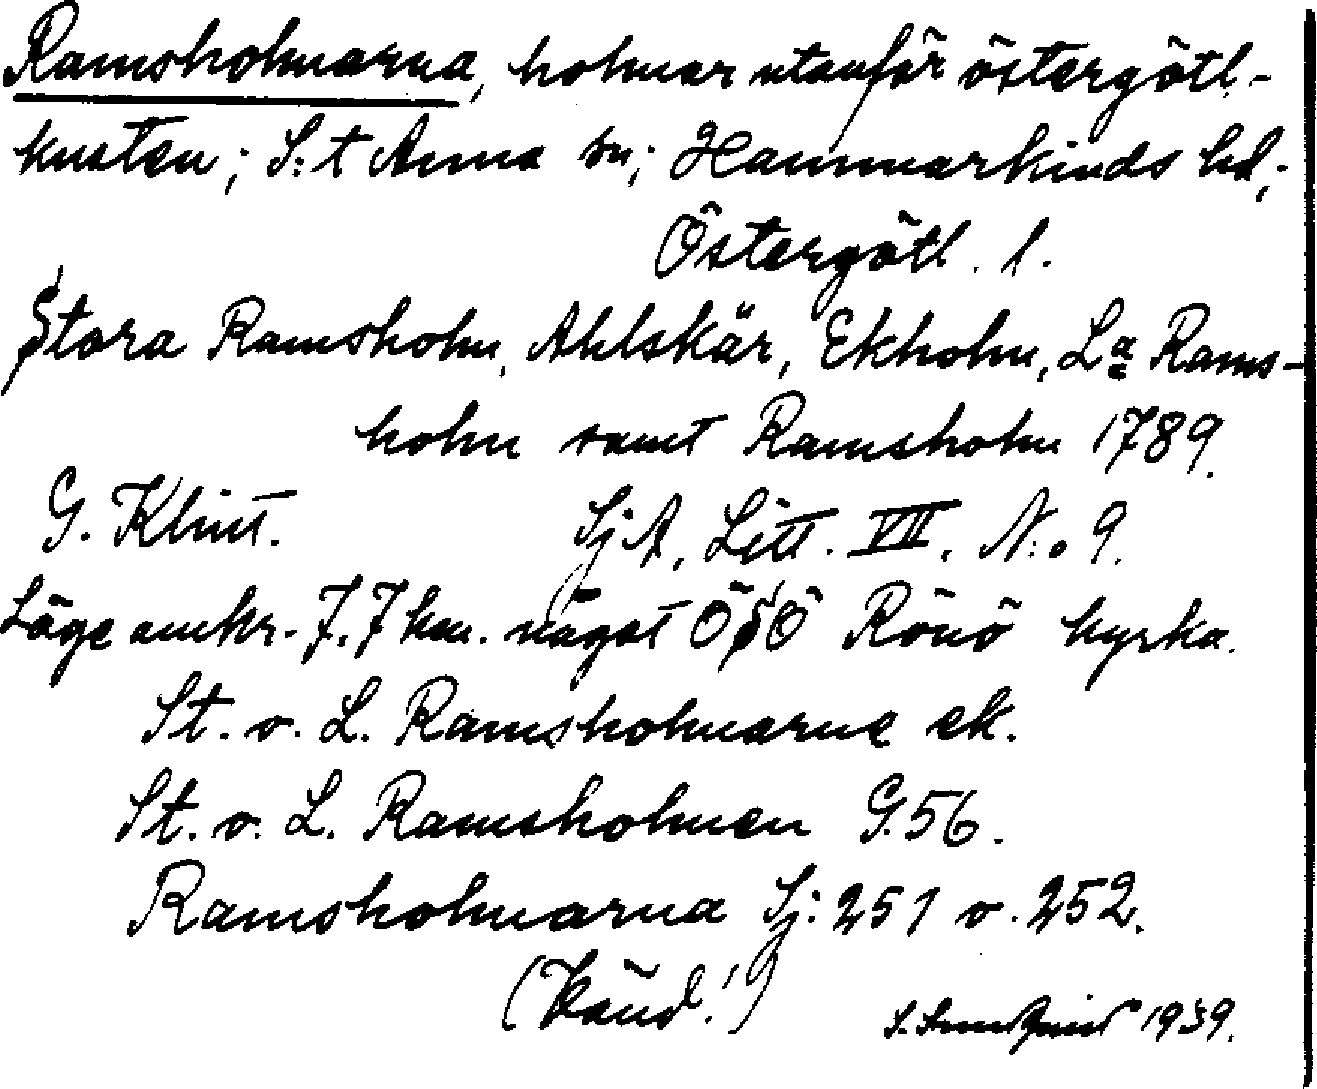 Ramsholmarna, holmar utanför östergötl-
kusten; S:t Anna sn; Hammarkinds hd;
Östergötl. l.
Stora Ramsholm, Ahlskär, Ekholm, La Rams-
holm samt Ramsholm 1789.
G. Klint. SjA, Litt. VII, N:o 9.
Läge omkr. 7,7 km. något ÖSÖ Rönö kyrka.
St. o. L. Ramsholmarne ek.
St. o. L. Ramsholmen G.56.
Ramsholmarna Sj: 251 o. 252.
(Känd!)
1939.